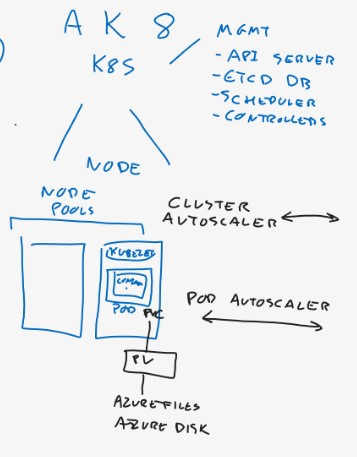 AK8
K8S
MGMT
- API SERVER
- ETCD DB
- SCHEDULER
- CONTROLLERS
NODE
NODE
POOLS
CLUSTER
AUTOSCALER
KUBELET
POD
PVC
POD AUTOSCALER
PV
AZURE FILES
AZURE DISK